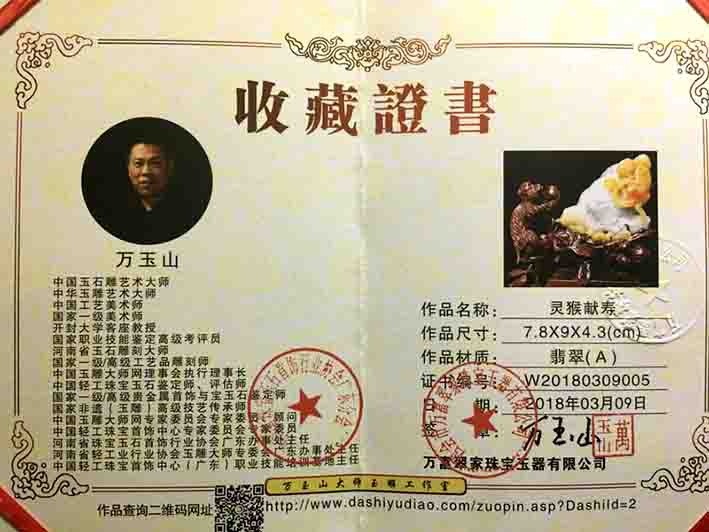 收藏證書
万玉山
中国玉石雕艺术大师
中华玉雕艺术大师
中国工艺美术师
国家一级美术师
开封大学客座教授
国家职业技能鉴定高级考评员
河南省玉石雕刻大师
国家一级/高级工艺品雕刻师
中国玉雕大师网理事会执行理事长
中国轻工珠宝玉石鉴定师、评估师
国家一级/高级贵金属首饰与宝玉石鉴定师
国家非遗(玉雕)高级技艺传承师
中国玉雕大师网专家委员会专家委员、顾问
中国轻工珠宝首饰中心专家委员会专家委员
河南省珠宝玉石首饰行业协会广东办事处主任
中国轻工珠宝首饰中心(广东)职业技能培训基地主任
作品名称: 灵猴献寿
作品尺寸: 7.8X9X4.3(cm)
作品材质: 翡翠(A)
证书编号: W20180309005
日 期: 2018年03月09日
签 章: 万玉山
萬玉山
万富翠家珠宝玉器有限公司
万玉山大师玉雕工作室
作品查询二维码网址
http://www.dashiyudiao.com/zuopin.asp?DashiId=2